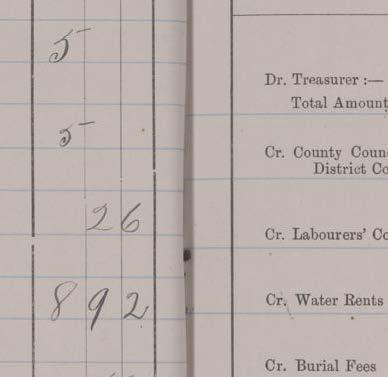 5
Dr. Treasurer :—
Total Amount
5
Cr. County Coun
District Co
26
Cr. Labourers' Co
8 9 2
Cr. Water Rents
Cr. Burial Fees